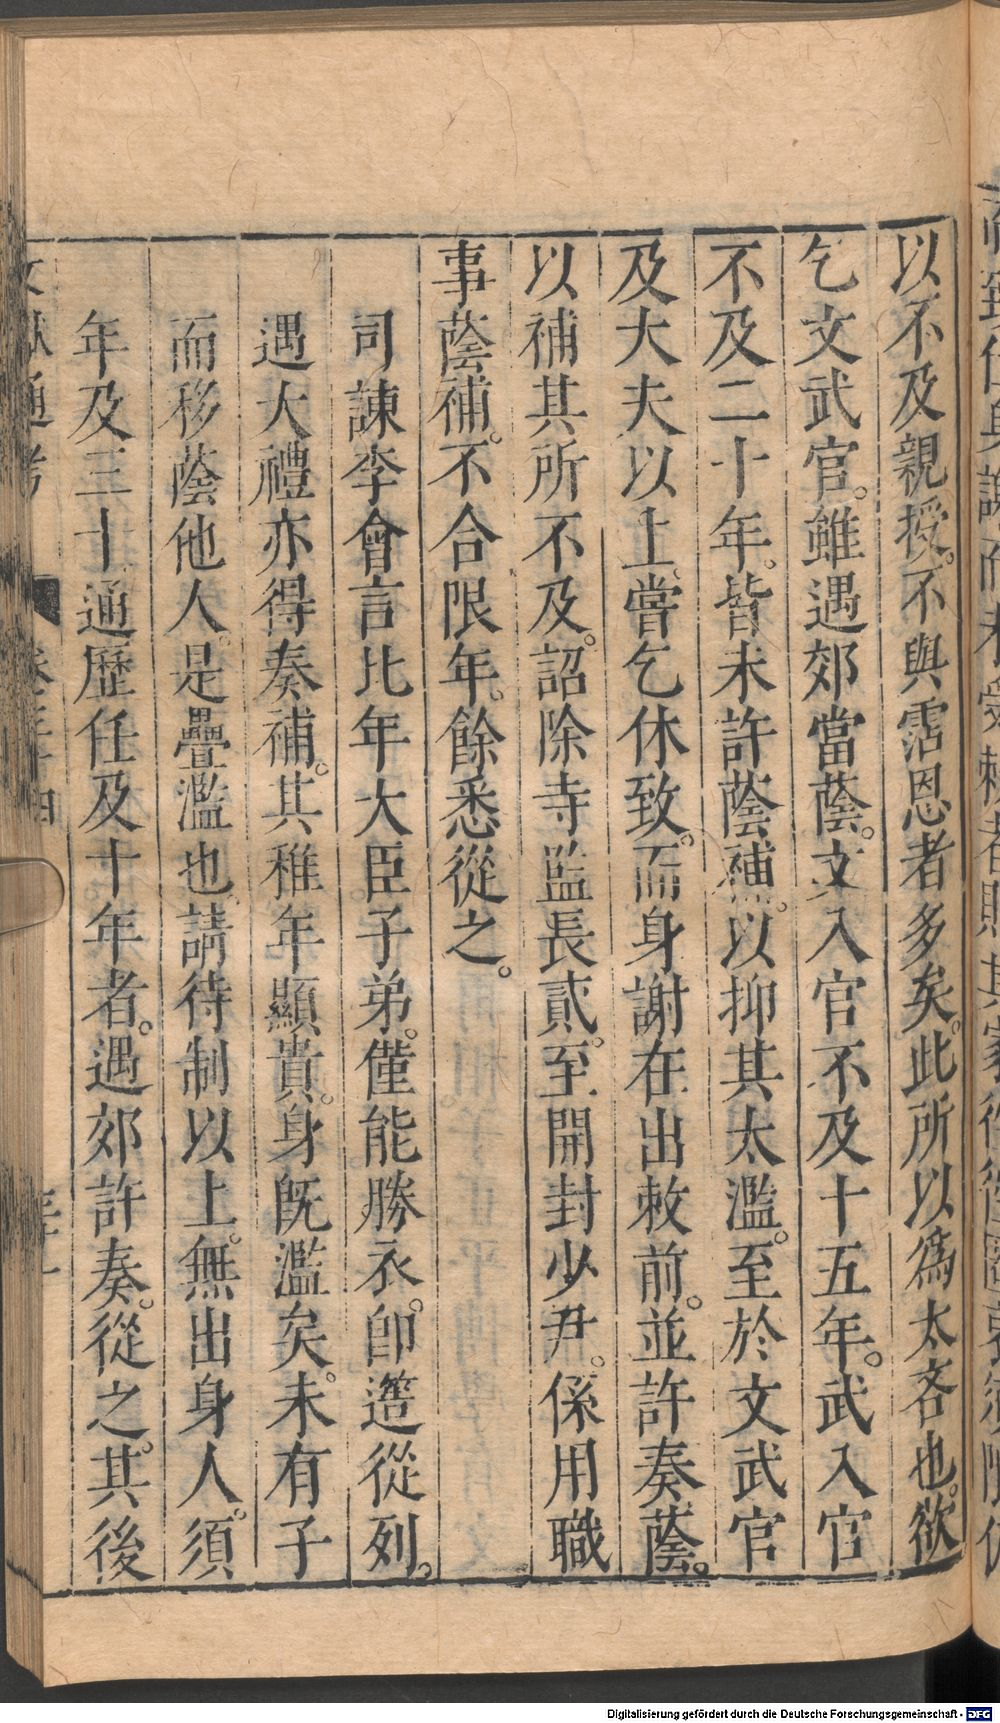 以不及親授。不與霑恩者多矣。此所以爲太吝也。欲
乞文武官。雖遇郊當蔭。文入官不及十五年。武入官
不及二十年。皆未許蔭補。以抑其太濫。至於文武官
及大夫以上。嘗乞休致。而身謝在出敕前。並許奏蔭。
以補其所不及。詔除寺監長貳。至開封少尹。係用職
事蔭補。不合限年。餘悉從之。
司諫李會言比年大臣子弟。僅能勝衣。卽遣從列。
遇大禮亦得奏補。其稚年顯貴。身旣濫矣。未有子
而移蔭他人。是疊濫也。請待制以上。無出身人。須
年及三十通歷任及十年者。遇郊許奏。從之。其後
文獻通考 卷三十四
Digitalisierung gefördert durch die Deutsche Forschungsgemeinschaft - DFG